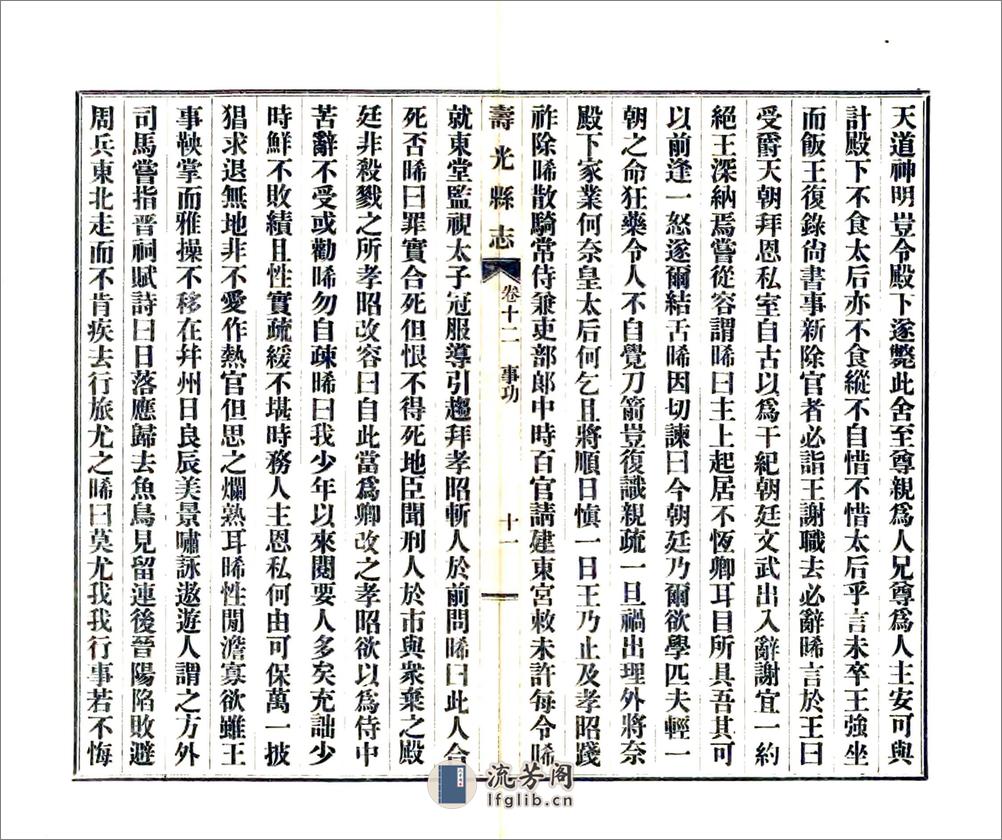 天道神明豈令殿下遂斃此舍至尊親爲人兄尊爲人主安可與
計殿下不食太后亦不食縱不自惜不惜太后乎言未卒王強坐
而飯王復錄尙書事新除官者必詣王謝職去必辭晞言於王曰
受爵天朝拜恩私室自古以爲干紀朝廷文武出入辭謝宜一約
絕王深納焉嘗從容謂晞曰主上起居不恆卿耳目所具吾其可
以前逢一怒遂爾結舌晞因切諫曰今朝廷乃爾欲學匹夫輕一
朝之命狂藥令人不自覺刀箭豈復識親疏一旦禍出理外將奈
殿下家業何奈皇太后何乞且將順日愼一日王乃止及孝昭踐
祚除晞散騎常侍兼吏部郞中時百官請建東宮敕未許每令晞
壽光縣志
卷十二 事功
十一
就東堂監視太子冠服導引趨拜孝昭斬人於前問晞曰此人合
死否晞曰罪實合死但恨不得死地臣聞刑人於市與衆棄之殿
廷非殺戮之所孝昭改容曰自此當爲卿改之孝昭欲以爲侍中
苦辭不受或勸晞勿自疎晞曰我少年以來閱要人多矣充詘少
時鮮不敗績且性實疏緩不堪時務人主恩私何由可保萬一披
猖求退無地非不愛作熱官但思之爛熟耳晞性閒澹寡欲雖王
事鞅掌而雅操不移在幷州日良辰美景嘯詠遨遊人謂之方外
司馬嘗指晋祠賦詩曰日落應歸去魚鳥見留連後晉陽陷敗避
周兵東北走而不肯疾去行旅尤之晞曰莫尤我我行事若不悔
流芳阁
lfglib.cn